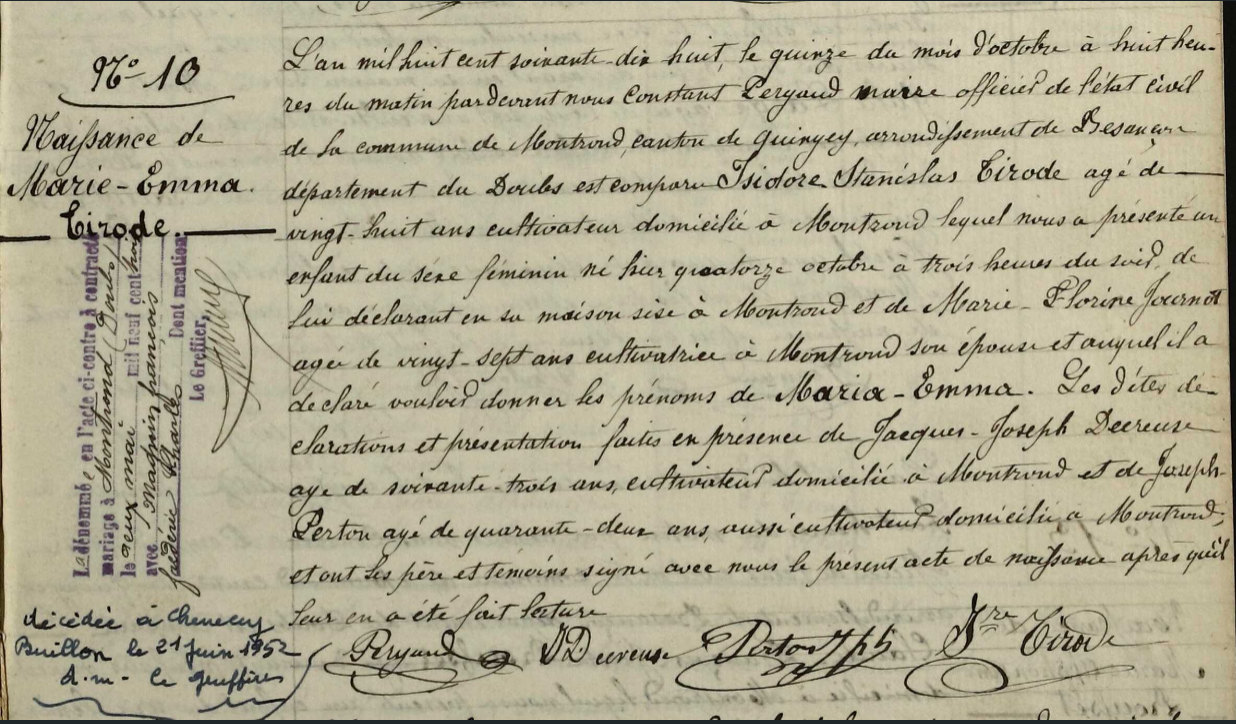 N° 10
Naissance de
Marie-Emma.
Tirode.
L'an mil huit cent soixante-dix huit, le quinze du mois d'octobre à huit heu-
res du matin pardevant nous Constant Pergaud maire officier de l'état civil
de la commune de Montrond, canton de Quingey, arrondissement de Besançon
département du Doubs est comparu Isidore Stanislas Tirode agé de
vingt-huit ans cultivateur domicilié à Montrond lequel nous a présenté un
enfant du séxe féminin né hier quatorze octobre à trois heures du soir, de
lui déclarant en sa maison sise à Montrond et de Marie-Florine Journot
agée de vingt-sept ans cultivatrice à Montrond son épouse et auquel il a
declaré vouloir donner les prénoms de Maria-Emma. Les dites dé-
clarations et présentation faites en présence de Jacques-Joseph Decreuse
age de soixante-trois ans, cultivateur domicilié à Montrond et de Joseph-
Perton agé de quarante-deux ans, aussi cultivateur domicilié à Montrond,
et ont les père et témoins signé avec nous le présent acte de naissance après qu'il
leur en a été fait lecture
Pergaud Decreuse Perton Jph Tirode
La dénommée en l'acte ci-contre à contracté
mariage à Montrond (Doubs)
le deux mai mil neuf cent
avec Magnin françois
frédéric Charles Dont mention
Le Greffier,
décédée à Chenecey
Buillon le 21 Juin 1952
d.m- Le greffier